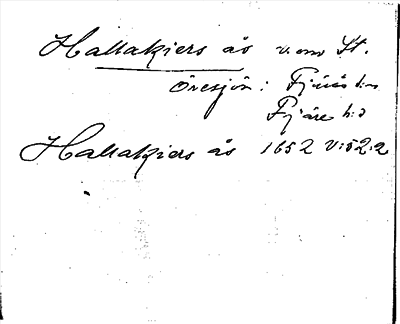 Hallakjers ås v. om St.
Öresjön: Fjärås s:n
Fjäre h:d
Hallakjers ås 1652 V:52:2